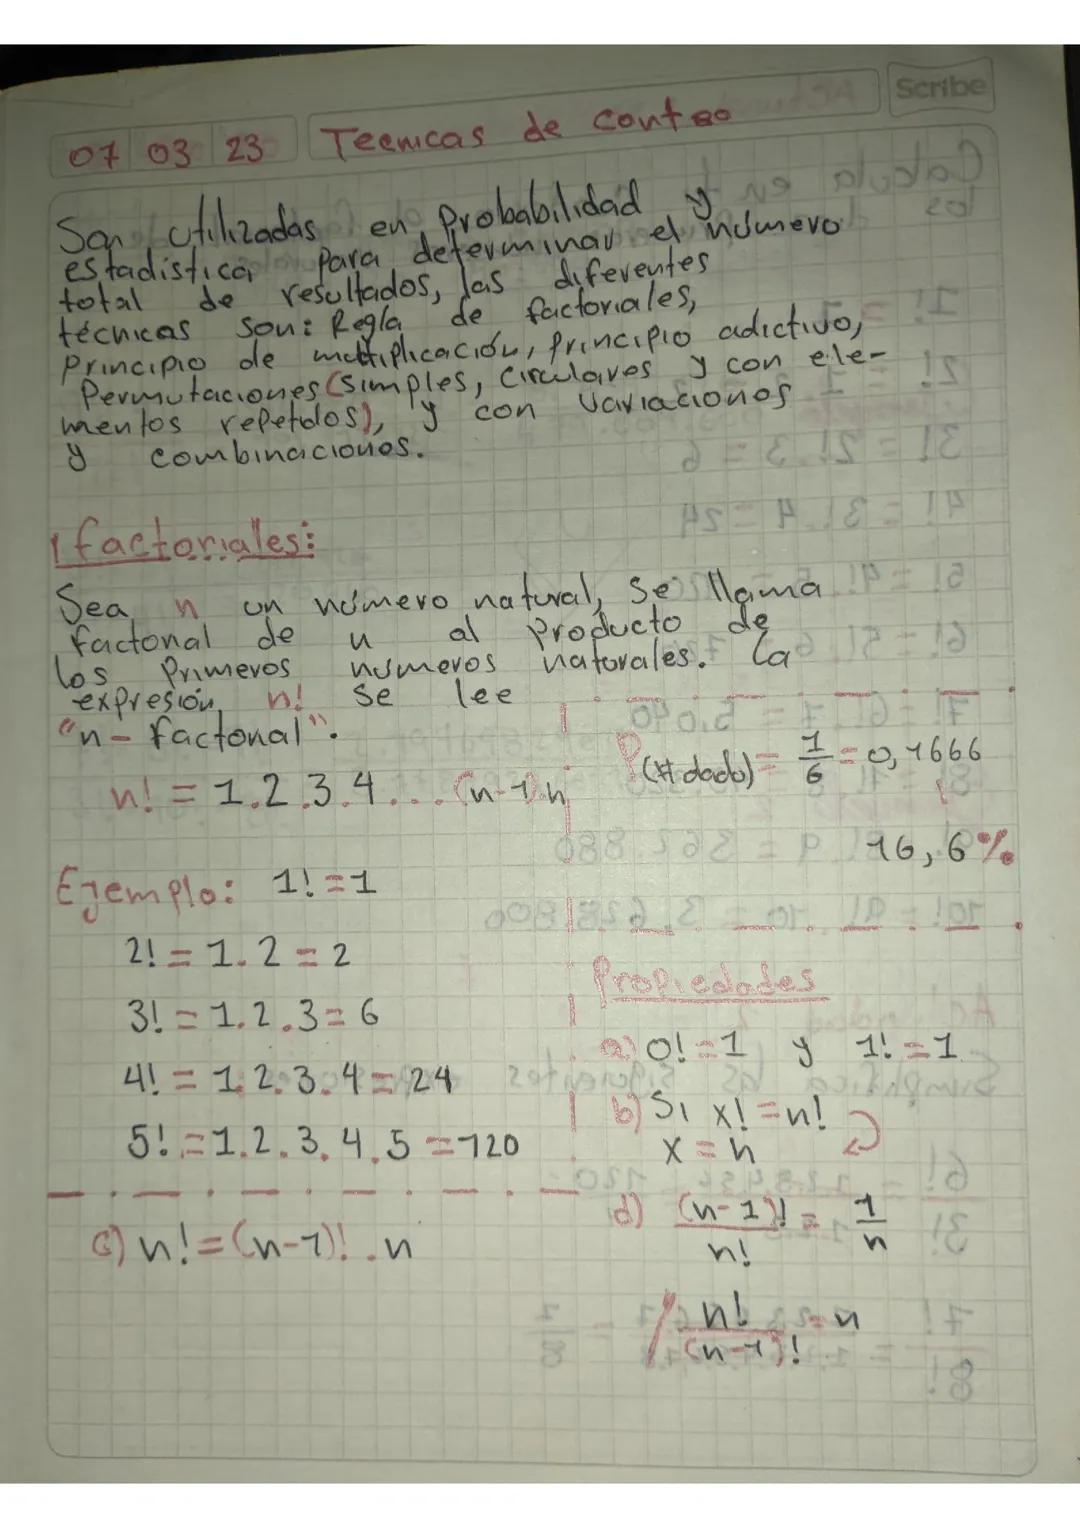 Scribe
07 03 23 Tecnicas de conteo
Son utilizadas en Probabilidad y
estadistica para determinar el número
total de resultados, las diferentes
técnicas son: Regla de factoriales,
Principio de multiplicación, Principio adictivo,
Permutaciones (simples, circulares y con ele-
mentos repetidos), y con variaciones
y combinaciones.
1 factoriales:
Sea n un número natural, Se llama
factorial de n al Producto de
los Primeros números naturales. La
expresión n! se lee
"n - factorial".
n! = 1.2.3.4...(n-1).n
P(# dado) = 1/6 = 0,1666
16,6%
Ejemplo: 1! = 1
2! = 1.2 = 2
3! = 1.2.3 = 6
4! = 1.2.3.4 = 24
5! = 1.2.3.4.5 = 120
c) n! = (n-1)! . n
Propiedades
a) 0! = 1 y 1! = 1
b) Si x! = n!
x = n
d) (n-1)!/n! = 1/n
/ n!/(n-1)! = n